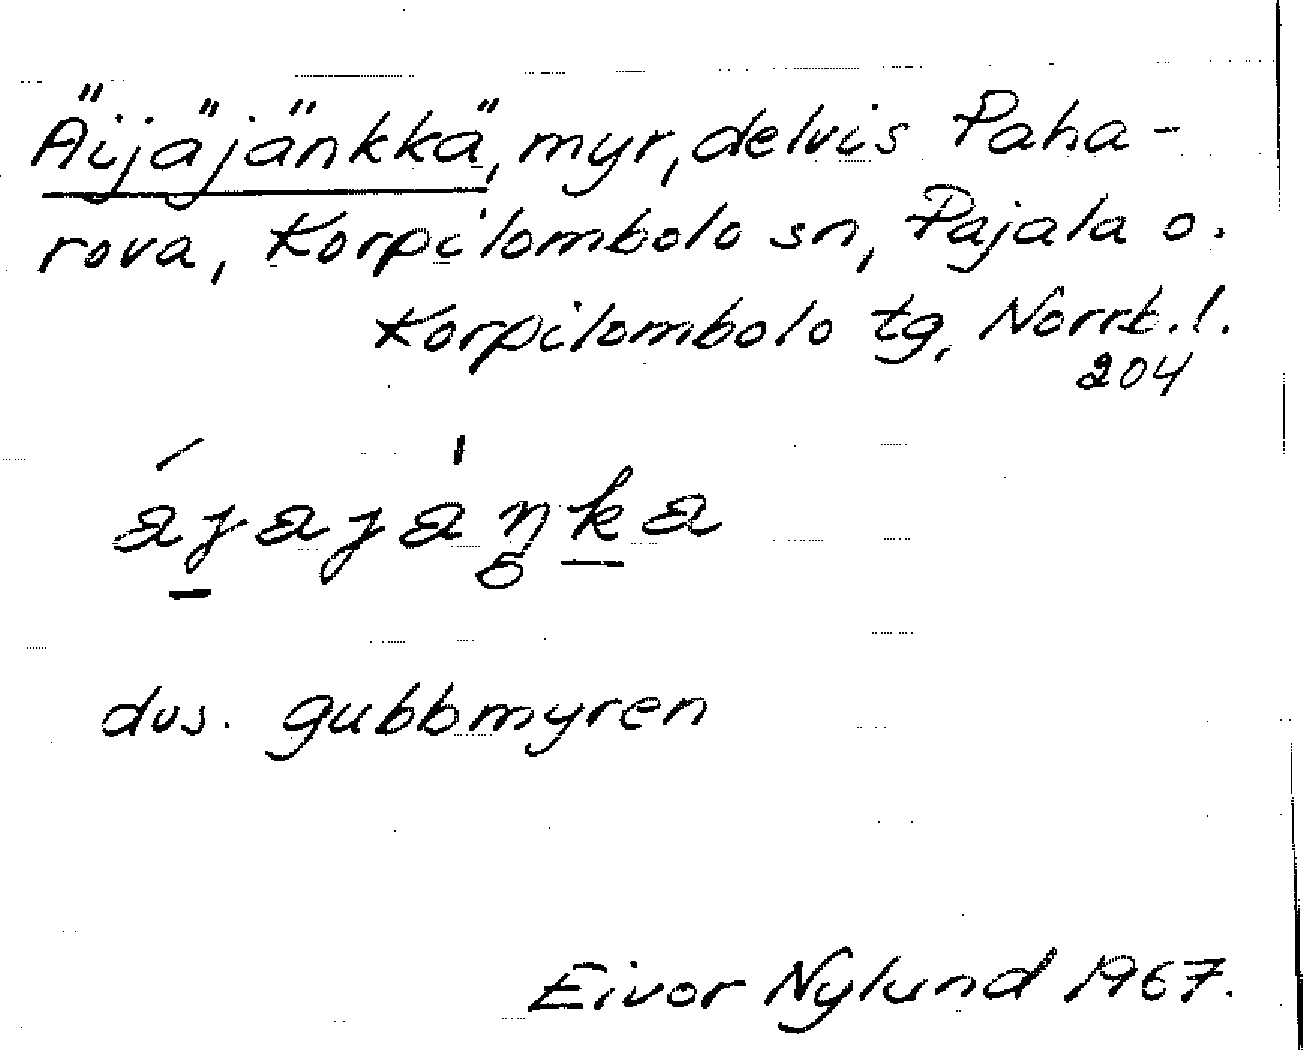 Äijäjänkkä, myr, delvis Paha-
rova, Korpilombolo sn, Pajala o.
Korpilombolo tg, Norrb.l.
204
dvs. gubbmyren
Eivor Nylund 1967.